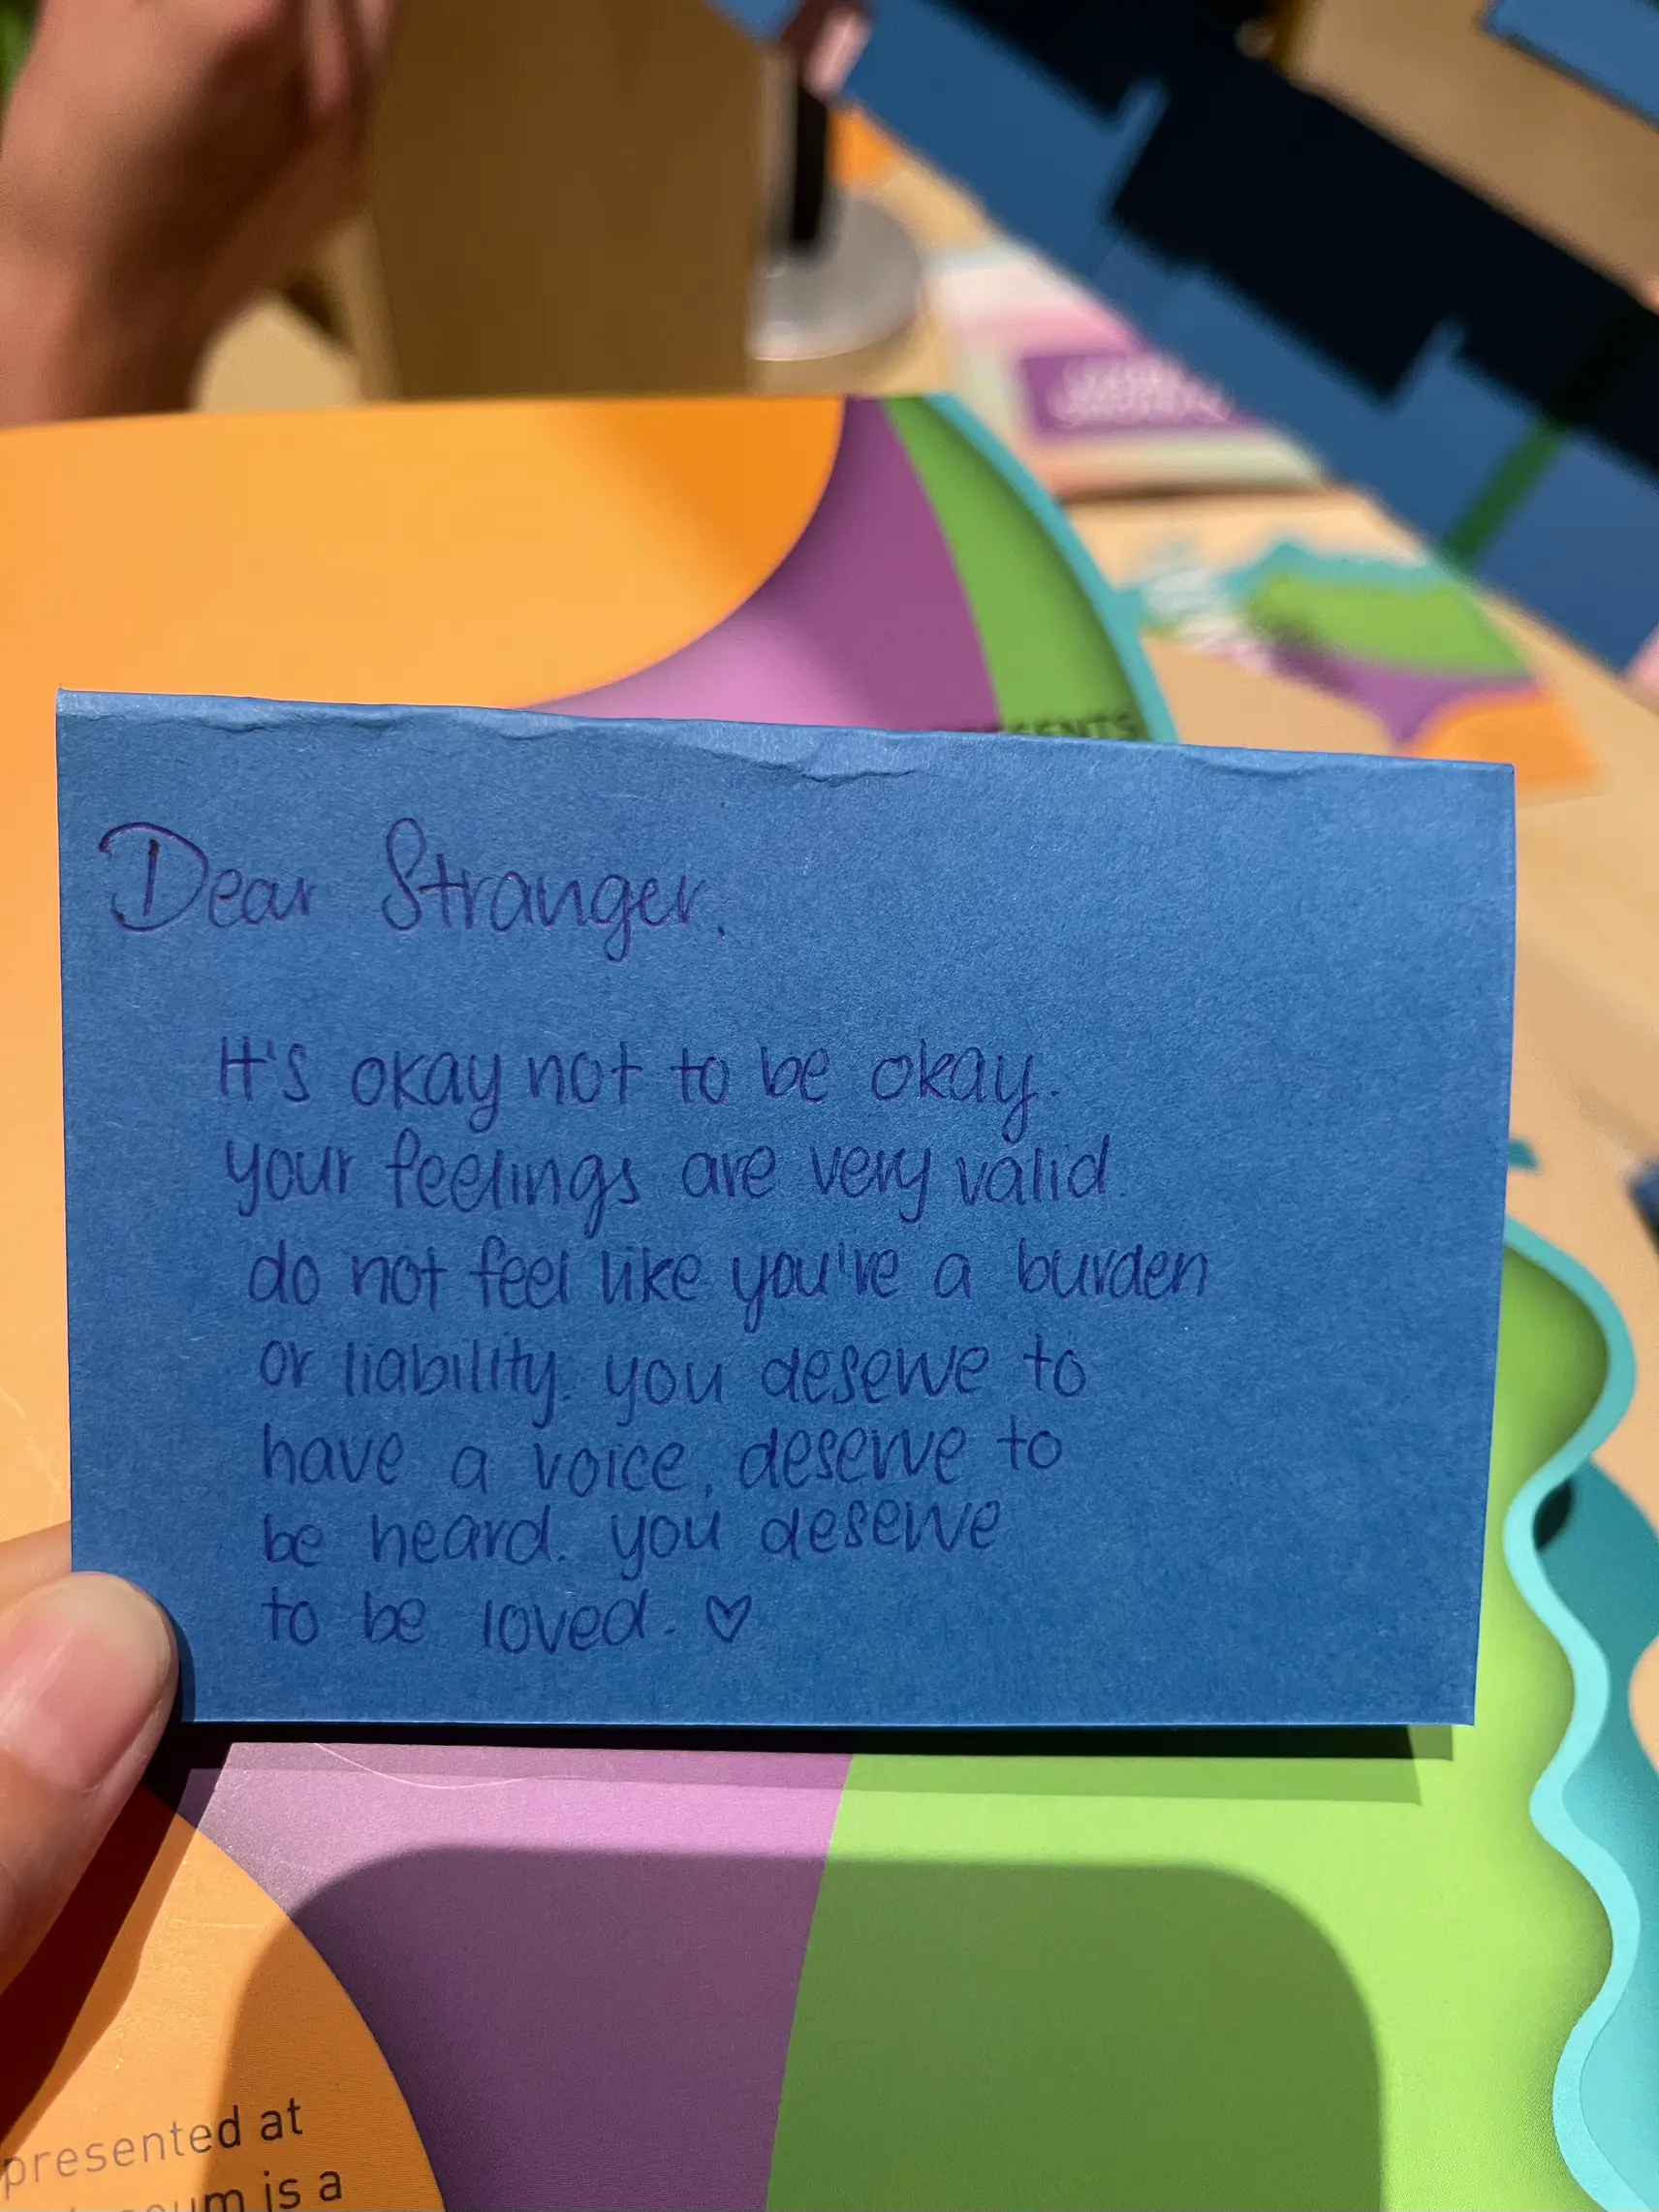 SENTS
Dear Stranger,
It's okay not to be okay.
your feelings are very valid.
do not feel like you're a burden
or liability. you deserve to
have a voice, deserve to
be heard. you deserve
to be loved. ♡
presented at
is a